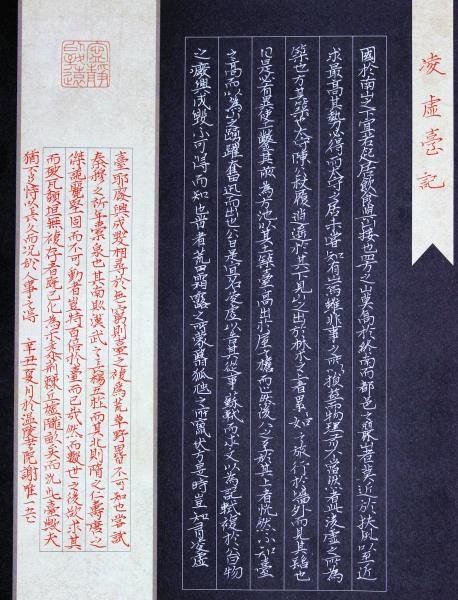 凌虛臺記
國於南山之下宜若起居飲食與山接也四方之山莫高於終南而都邑之麗山者莫近於扶風以至近
求最高其勢必得而太守之居未嘗知有山焉雖非事之所以損益而物理有不當然者此凌虛之所為
築也方其未築也太守陳公杖履逍遙於其下見山之出於林木之上者累累如人之旅行於墻外而見其髻也
曰是必有異使工鑿其前為方池以其土築臺高出於屋之檐而止然後人之至於其上者恍然不知臺
之高而以為山之踊躍奮迅而出也公曰是宜名凌虛以告其從事蘇軾而求文以為記軾復於公曰物
之廢興成毀不可得而知也昔者荒草野田霜露之所蒙翳狐虺之所竄伏方是時豈知有凌虛
臺耶廢興成毀相尋於無窮則臺之復為荒草野田皆不可知也嘗試
秦穆之祈年橐泉也其南則漢武之長楊五柞而其北則隋之仁壽唐之
傑詭麗堅固而不可動者豈特百倍於臺而已哉然而數世之後欲求其
而破瓦頹垣無復存者既已化為禾黍荊棘丘墟隴畝矣而況於此臺歟夫
猶不足恃以長久而況於人事之得 辛丑夏月於 謝唯
寧靜致遠